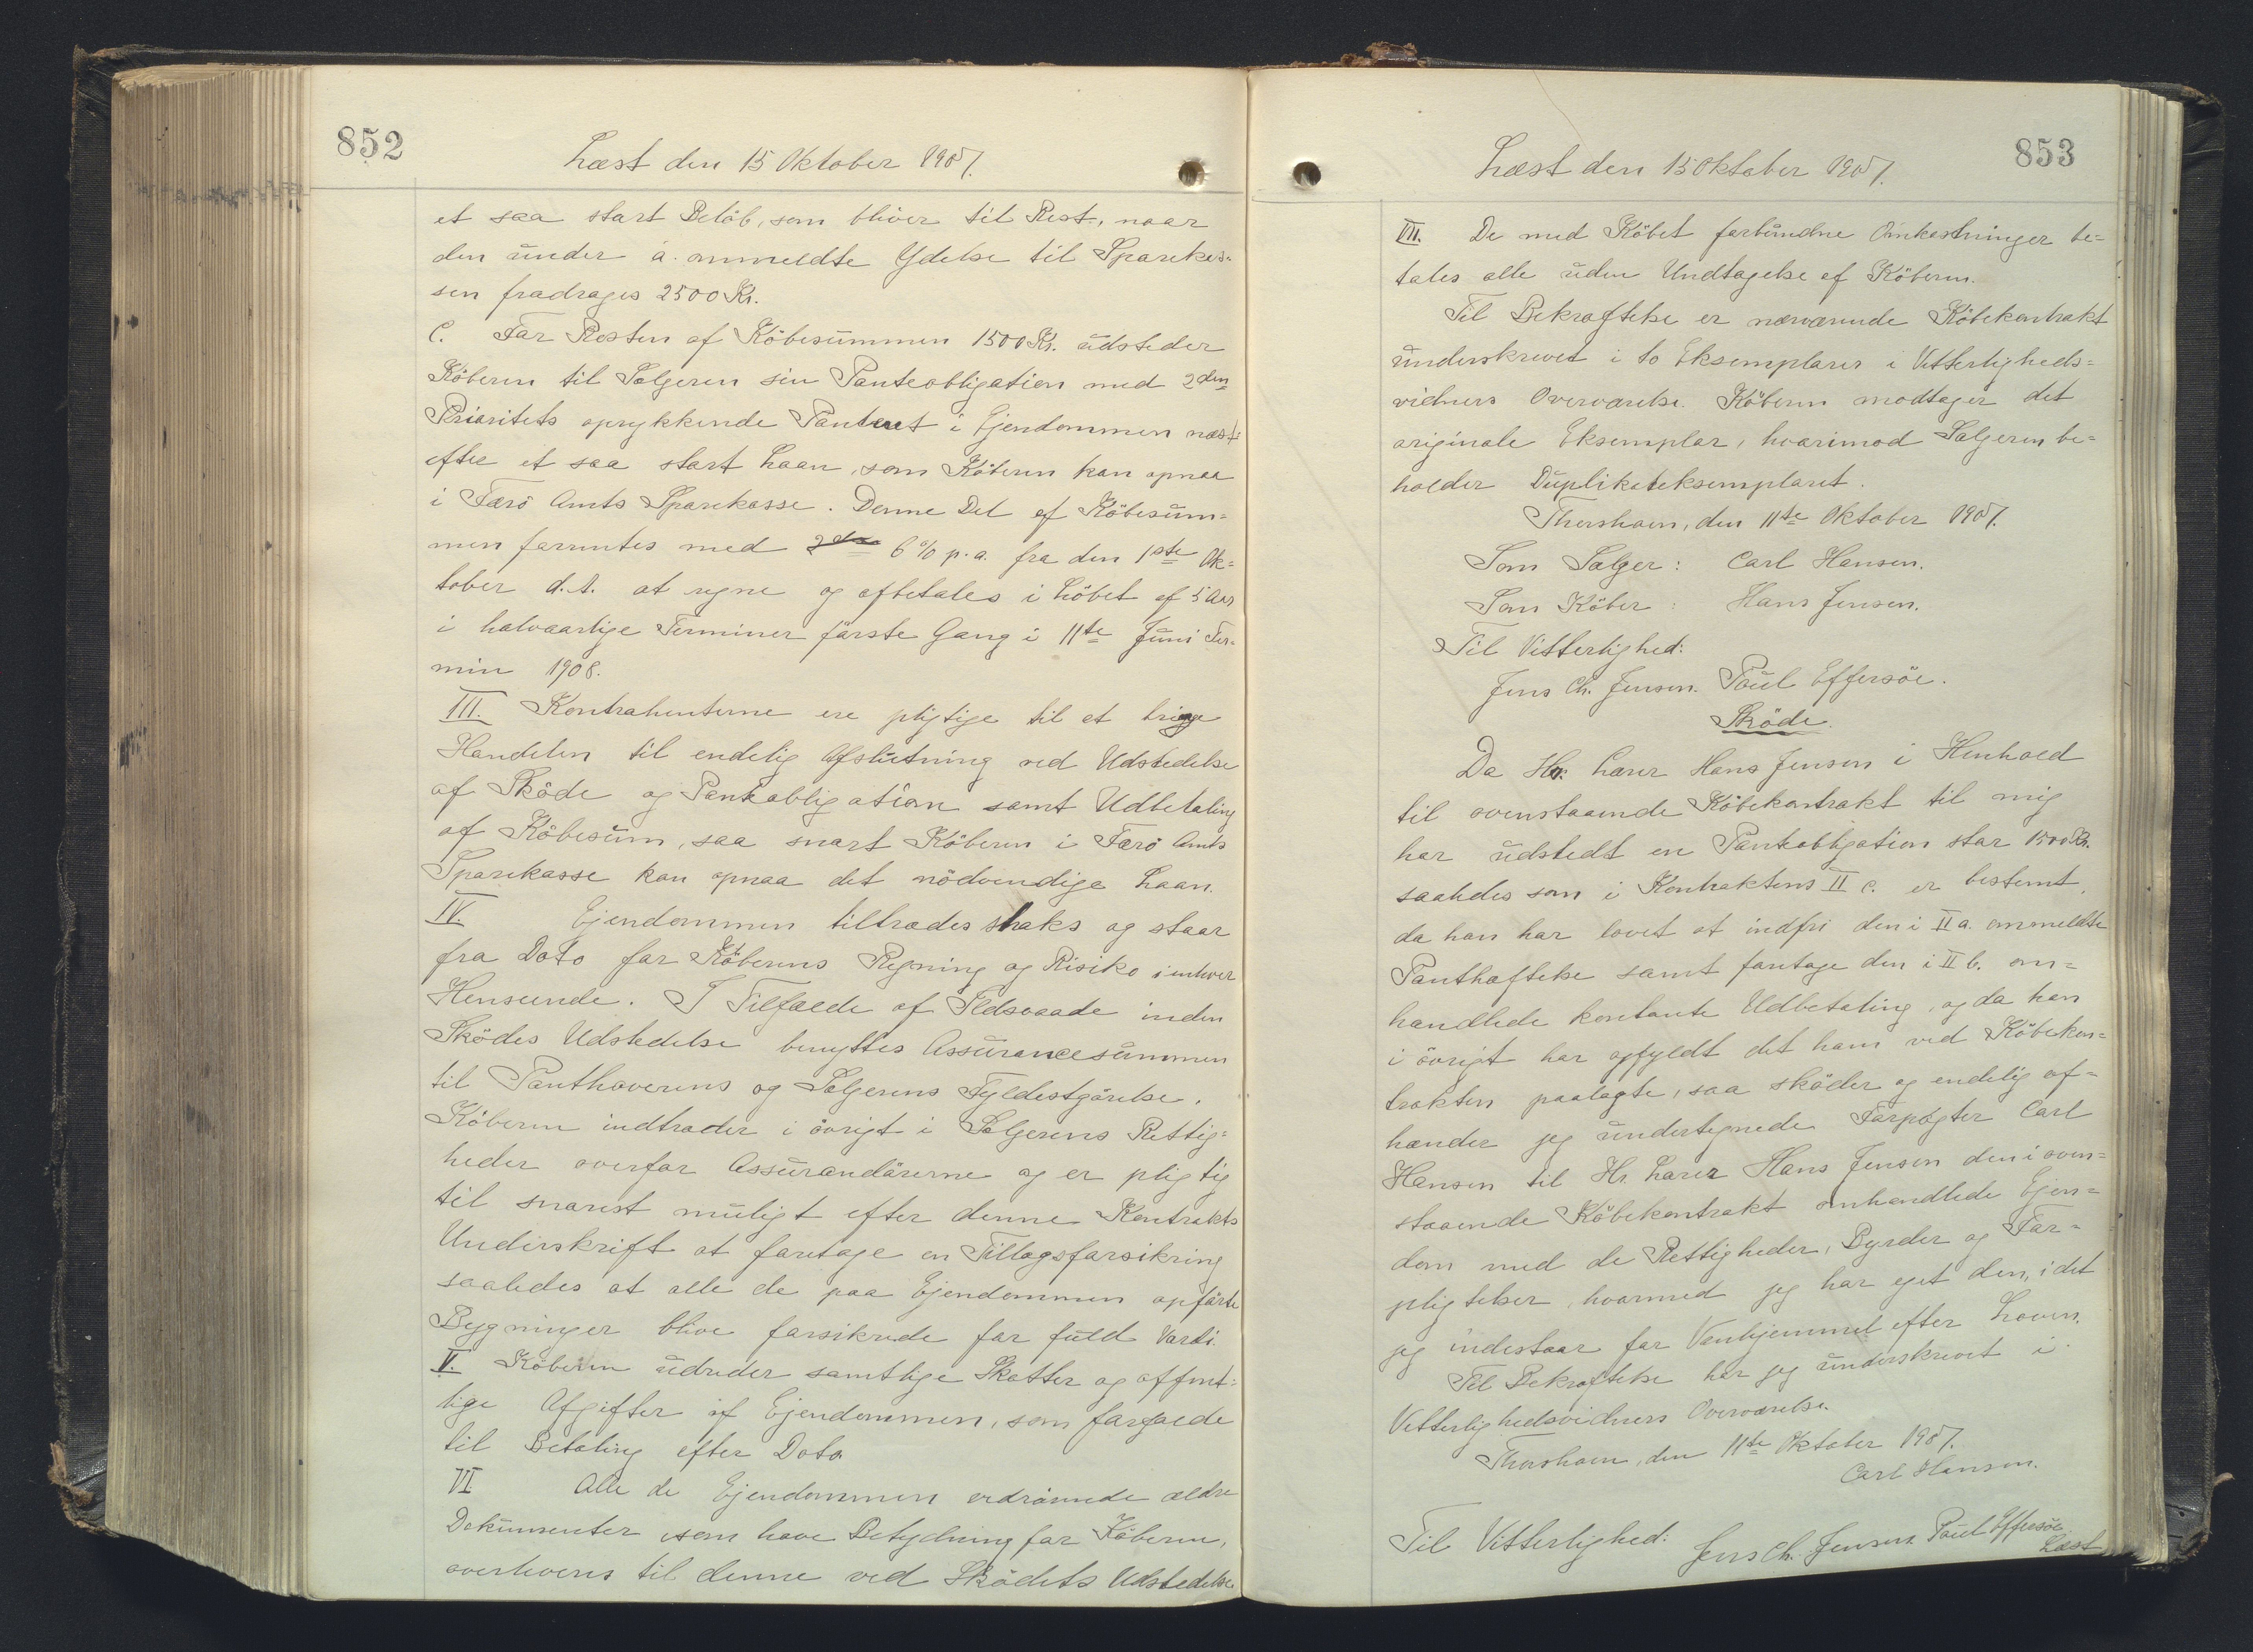 852
Læst den 15 Oktober 1907.
et saa stort Beløb, som bliver til Rest, naar
den under a. ommeldte Ydelse til Sparekas-
sen fradrages 2500 Kr.
C. For Resten af Köbesummen 1500 Kr. udsteder
Köberen til Sælgeren sin Panteobligation med 2den
Prioritets oprykkende Panteret i Ejendommen næst
efter et saa stort Laan, som Köberen kan opnaa
i Færö Amts Sparekasse. Denne Del af Köbesum=
men forrentes med 6% p.a. fra den 1ste Ok=
tober d.A. at regne og afbetales i Löbet af 5 Aar
i halvaarlige Terminer förste Gang i 11te Juni Ter=
min 1908.
III. Kontrahenterne ere pligtige til at bringe
Handelen til endelig Afslutning ved Udstedelse
af Sköde og Pantobligation samt Udbetaling
af Köbesum, saa snart Köberen i Færö Amts
Sparekasse kan opnaa det nödvendige Laan.
IV. Ejendommen tiltrædes straks og staar
fra Dato for Köberens Regning og Risiko i enhver
Henseende. I Tilfælde af Ildsvaade inden
Sködes Udstedelse benyttes Assurancesummen
til Panthaverens og Sælgerens Fyldestgörelse.
Köberen indtræder i övrigt i Sælgerens Rettig=
heder overfor Assurandörerne og er pligtig
til snarest muligt efter denne Kontrakts
Underskrift at foretage en Tillægsforsikring
saaledes at alle de paa Ejendommen opförte
Bygninger blive forsikrede for fuld Værdi.
V. Köberen udreder samtlige Skatter og offent=
lige Afgifter af Ejendommen, som forfalde
til Betaling efter Dato.
VI Alle de Ejendommen vedrörende ældre
Dokumenter som have Betydning for Köberen,
overleveres til denne ved Sködets Udstedelse.
853
Læst den 15 Oktober 1907.
VII. De med Köbet forbundne Omkostninger be=
tales alle uden Undtagelse af Köberen.
Til Bekræftelse er nærværende Köbekontrakt
underskrevet i to Eksemplarer i Vitterligheds=
vidners Overværelse. Köberen modtager det
originale Eksemplar, hvorimod Sælgeren be=
holder Duplikateksemplaret.
Thorshavn, den 11te Oktober 1907.
Som Sælger: Carl Hansen.
Som Köber: Hans Jensen.
Til Vitterlighed:
Jens Ch. Jensen. Poul Effersöe.
Sköde.
Da Hr. Lærer Hans Jensen i Henhold
til ovenstaaende Köbekontrakt til mig
har udstedt en Pantobligation stor 1500 Kr.
saaledes som i Kontraktens II c. er bestemt,
da han har lovet at indfri den i II a. ommeldte
Panthæftelse samt foretage den i II b. om=
handlede kontante Udbetaling, og da han
i övrigt har opfyldt det ham ved Köbekon=
trakten paalagte, saa sköder og endelig af=
hænder jeg undertegnede Forpagter Carl
Hansen til Hr. Lærer Hans Jensen den i oven=
staaende Köbekontrakt omhandlede Ejen=
dom med de Rettigheder, Byrder og For=
pligtelser, hvormed jeg har ejet den, idet
jeg indestaar for Vanhjemmel efter Loven.
Til Bekræftelse har jeg underskrevet i
Vitterlighedsvidners Overværelse.
Thorshavn, den 11te Oktober 1907.
Carl Hansen.
Til Vitterlighed: Jens Ch. Jensen. Poul Effersöe.
Læst